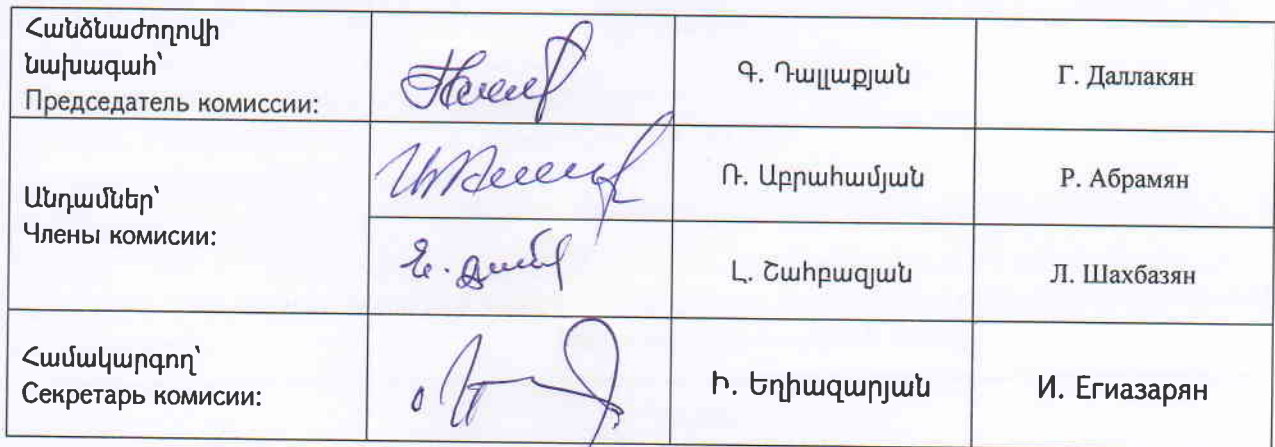 Հանձնաժողովի
նախագահ՝
Председатель комиссии:
Գ. Դալլաքյան
Г. Даллакян
Անդամներ՝
Члены комисии:
Ռ. Աբրահամյան
Р. Абрамян
Լ. Շահբազյան
Л. Шахбазян
Համակարգող՝
Секретарь комисии:
Ի. Եղիազարյան
И. Егиазарян